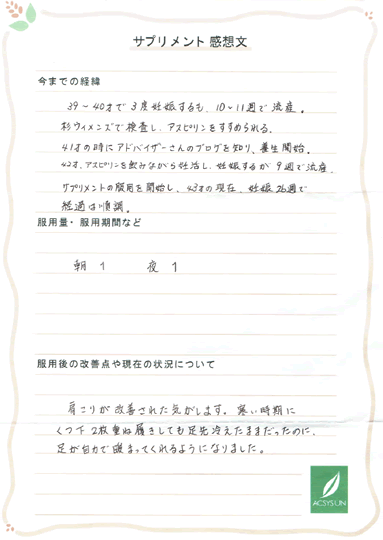 サプリメント 感想文
今までの経緯
39～40才で3度妊娠するも、10～11週で流産。
杉ウィメンズで検査し、アスピリンをすすめられる。
41才の時にアドバイザーさんのブログを知り、養生開始。
42才、アスピリンを飲みながら妊活し、妊娠するが9週で流産。
サプリメントの服用を開始し、43才の現在、妊娠26週で
経過は順調。
服用量・服用期間など
朝 1　夜 1
服用後の改善点や現在の状況について
肩こりが改善された気がします。寒い時期に
くつ下2枚重ね履きしても足先冷えたままだったのに、
足が自力で暖まってくれるようになりました。
ACSYSLIN